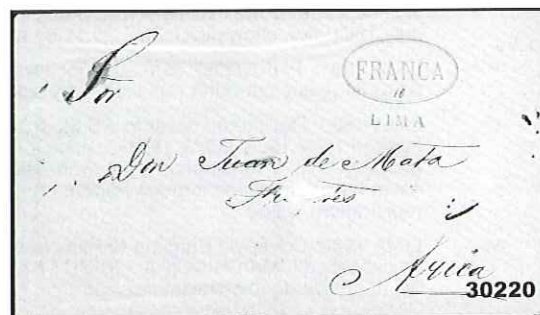 FRANCA
10
LIMA
Sor
Don Juan de Mata
Fuentes
Arica
30220